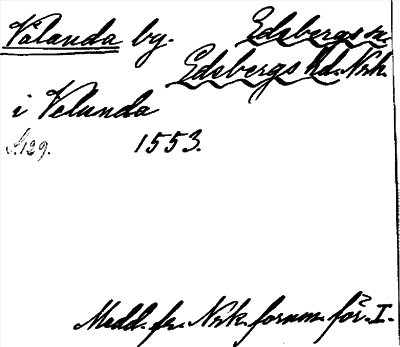 Välanda by. Edsbergs sn.
Edsbergs hd. Nrk.
i Velunda
S. 129. 1553.
Medd. fr. Nrk. fornm.för. I.